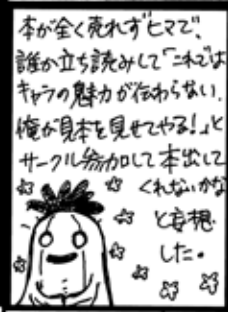 本が全く売れずヒマで、
誰か立ち読みして「これでは
キャラの魅力が伝わらない、
俺が見本を見せてやる!」と
サークル参加して本出して
くれないかな
と妄想
した。